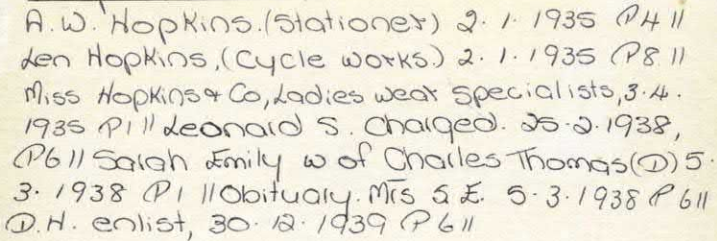 A.W. Hopkins.(Stationer) 2.1.1935 P4 ||
Len Hopkins,(Cycle works.) 2.1.1935 P8 ||
Miss Hopkins & Co, Ladies wear specialists, 3.4.
1935 P1 || Leonard S. Charged. 25.2.1938,
P6 || Sarah Emily w of Charles Thomas (D) 5.
3.1938 P1 || Obituary. Mrs S.E. 5.3.1938 P6 ||
D.H. enlist, 30.12.1939 P6 ||